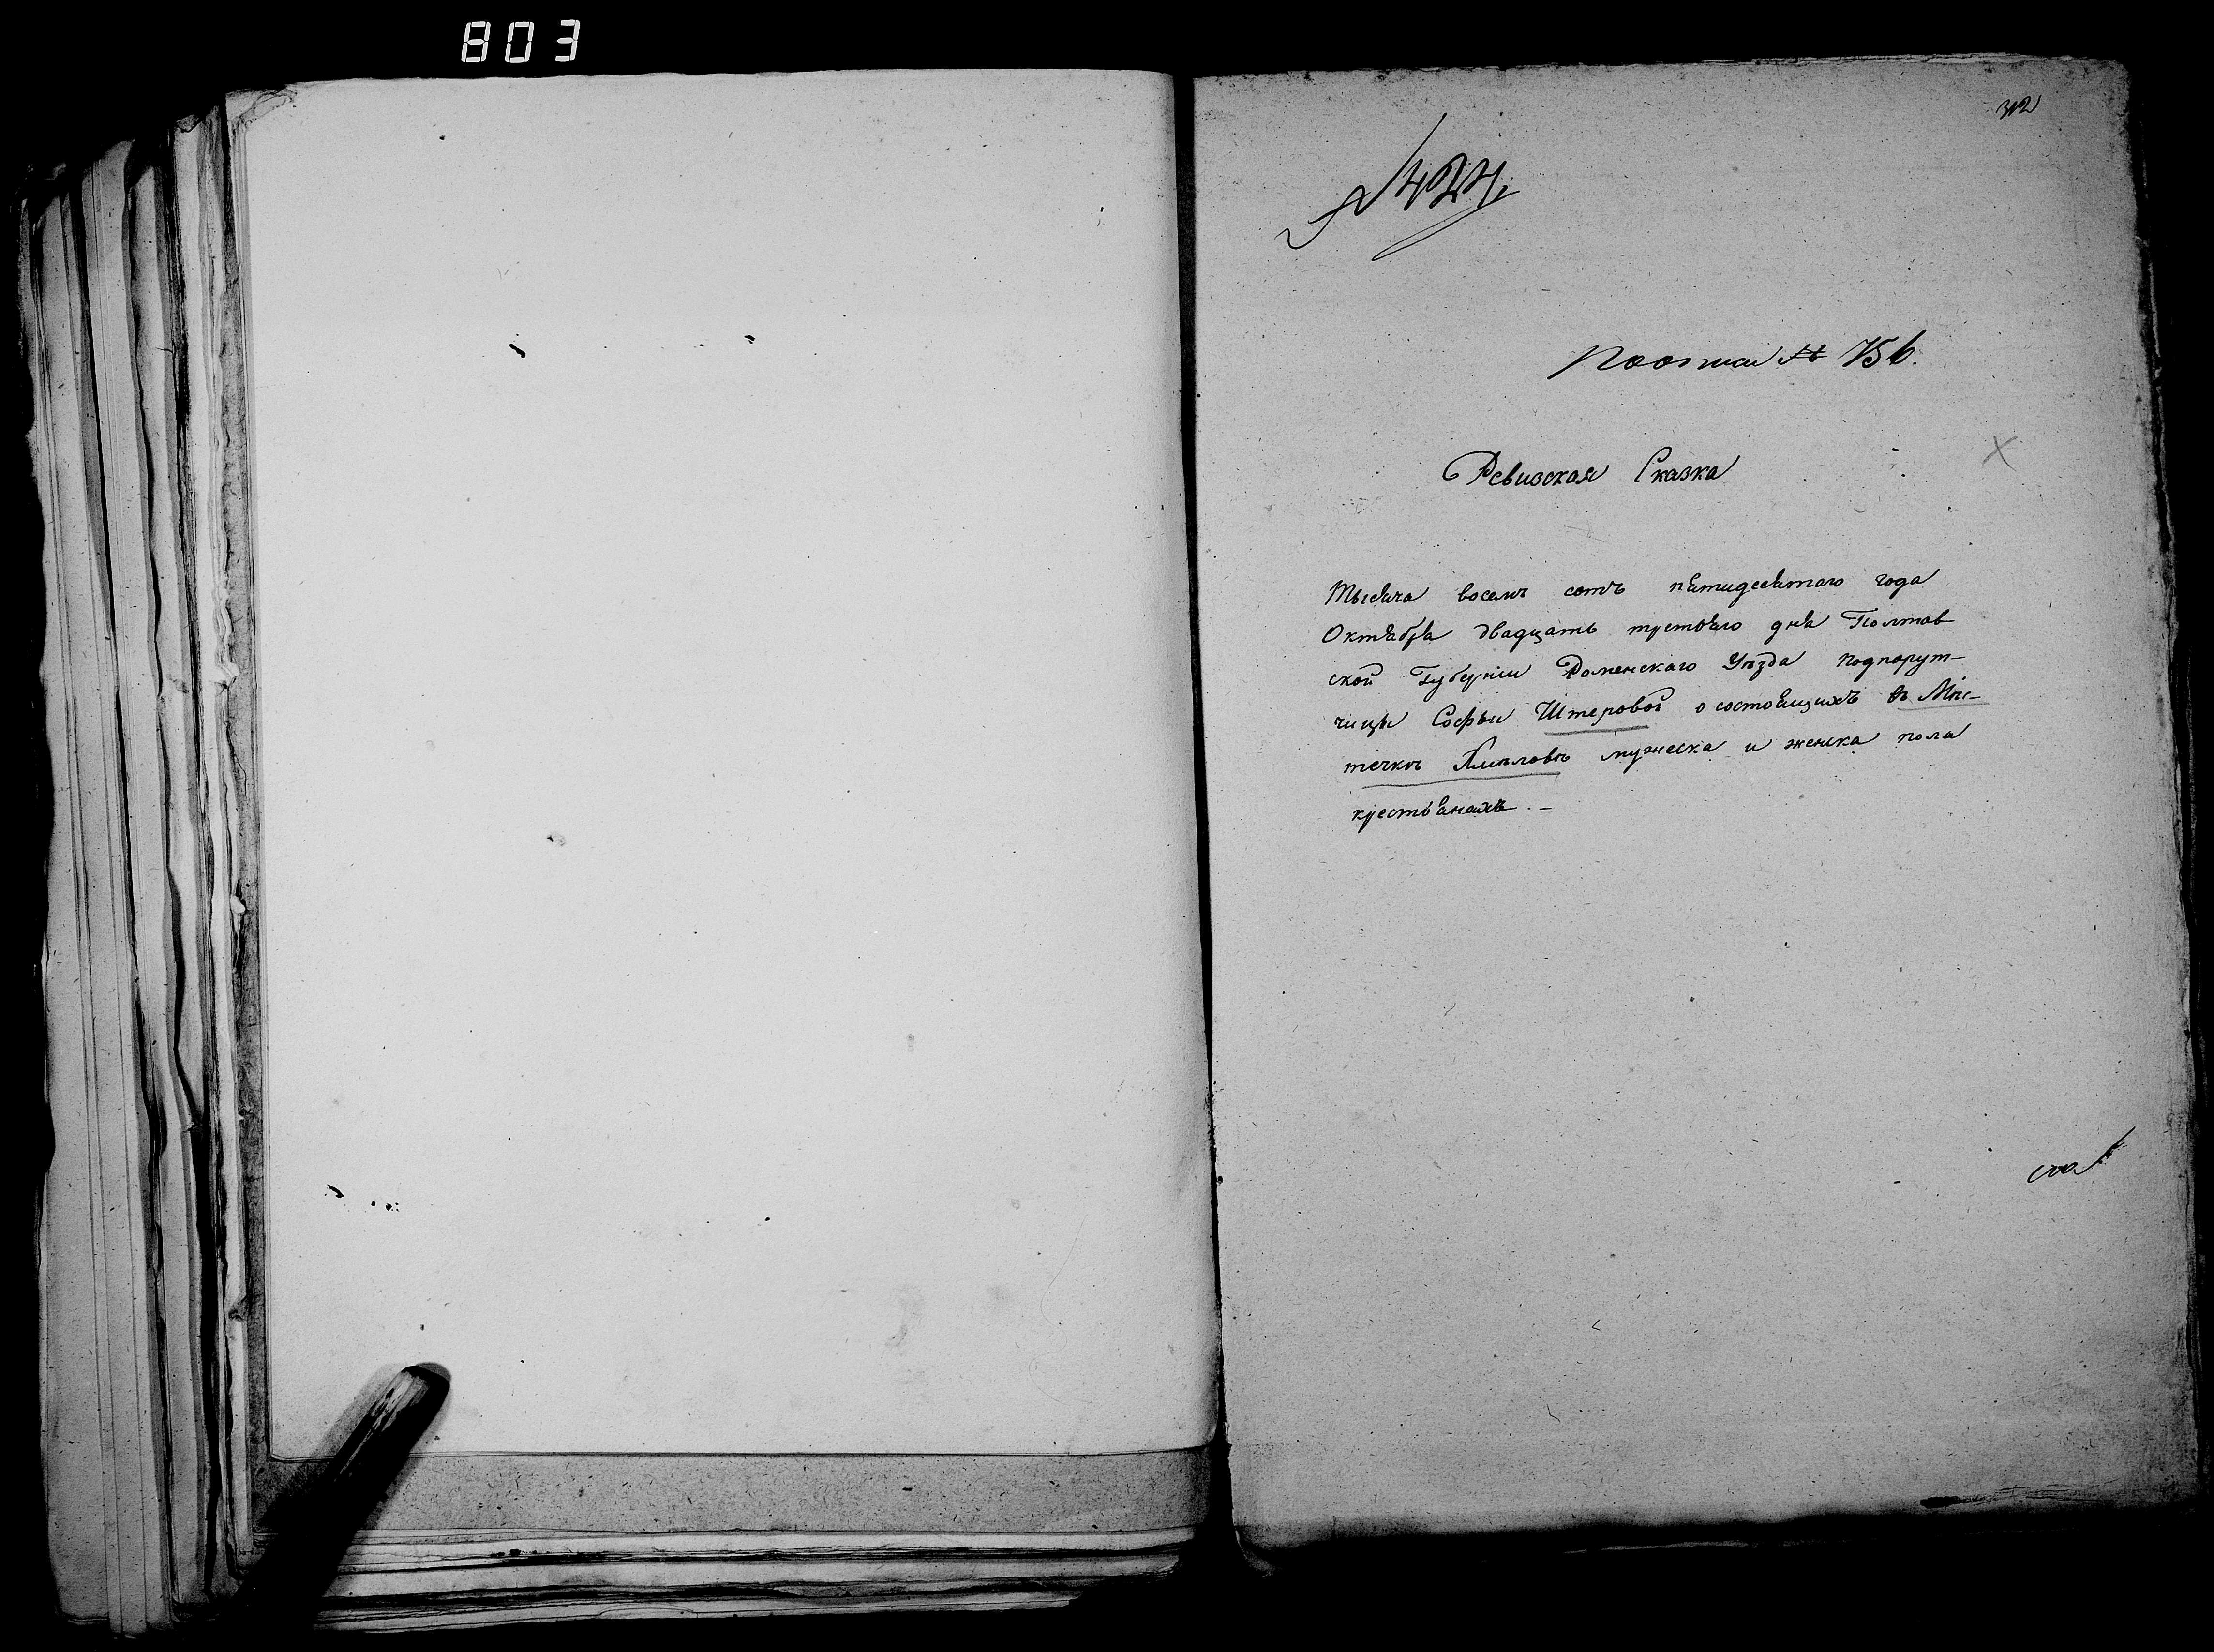 803
312
№ 424.
По описи № 756.
Ревизская Сказка
Тысяча восемь сотъ пятидесятаго года
Октября двадцать третьяго дня Полтав
ской Губерніи Роменскаго Уѣзда подпорут-
чицы Софьи Штеровой о состоящихъ въ Мѣс-
течкѣ Хмѣловѣ мужеска и женска пола
крестьянахъ. -